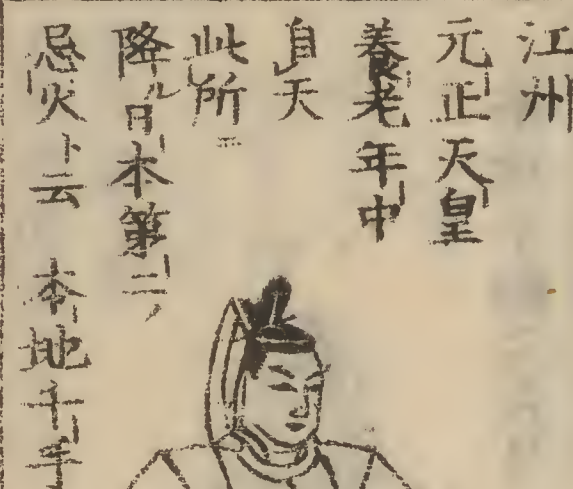 江州
元正天皇
養老年中
自天
此所ニ
降ル日本第二ノ
忌火ト云 本地千手